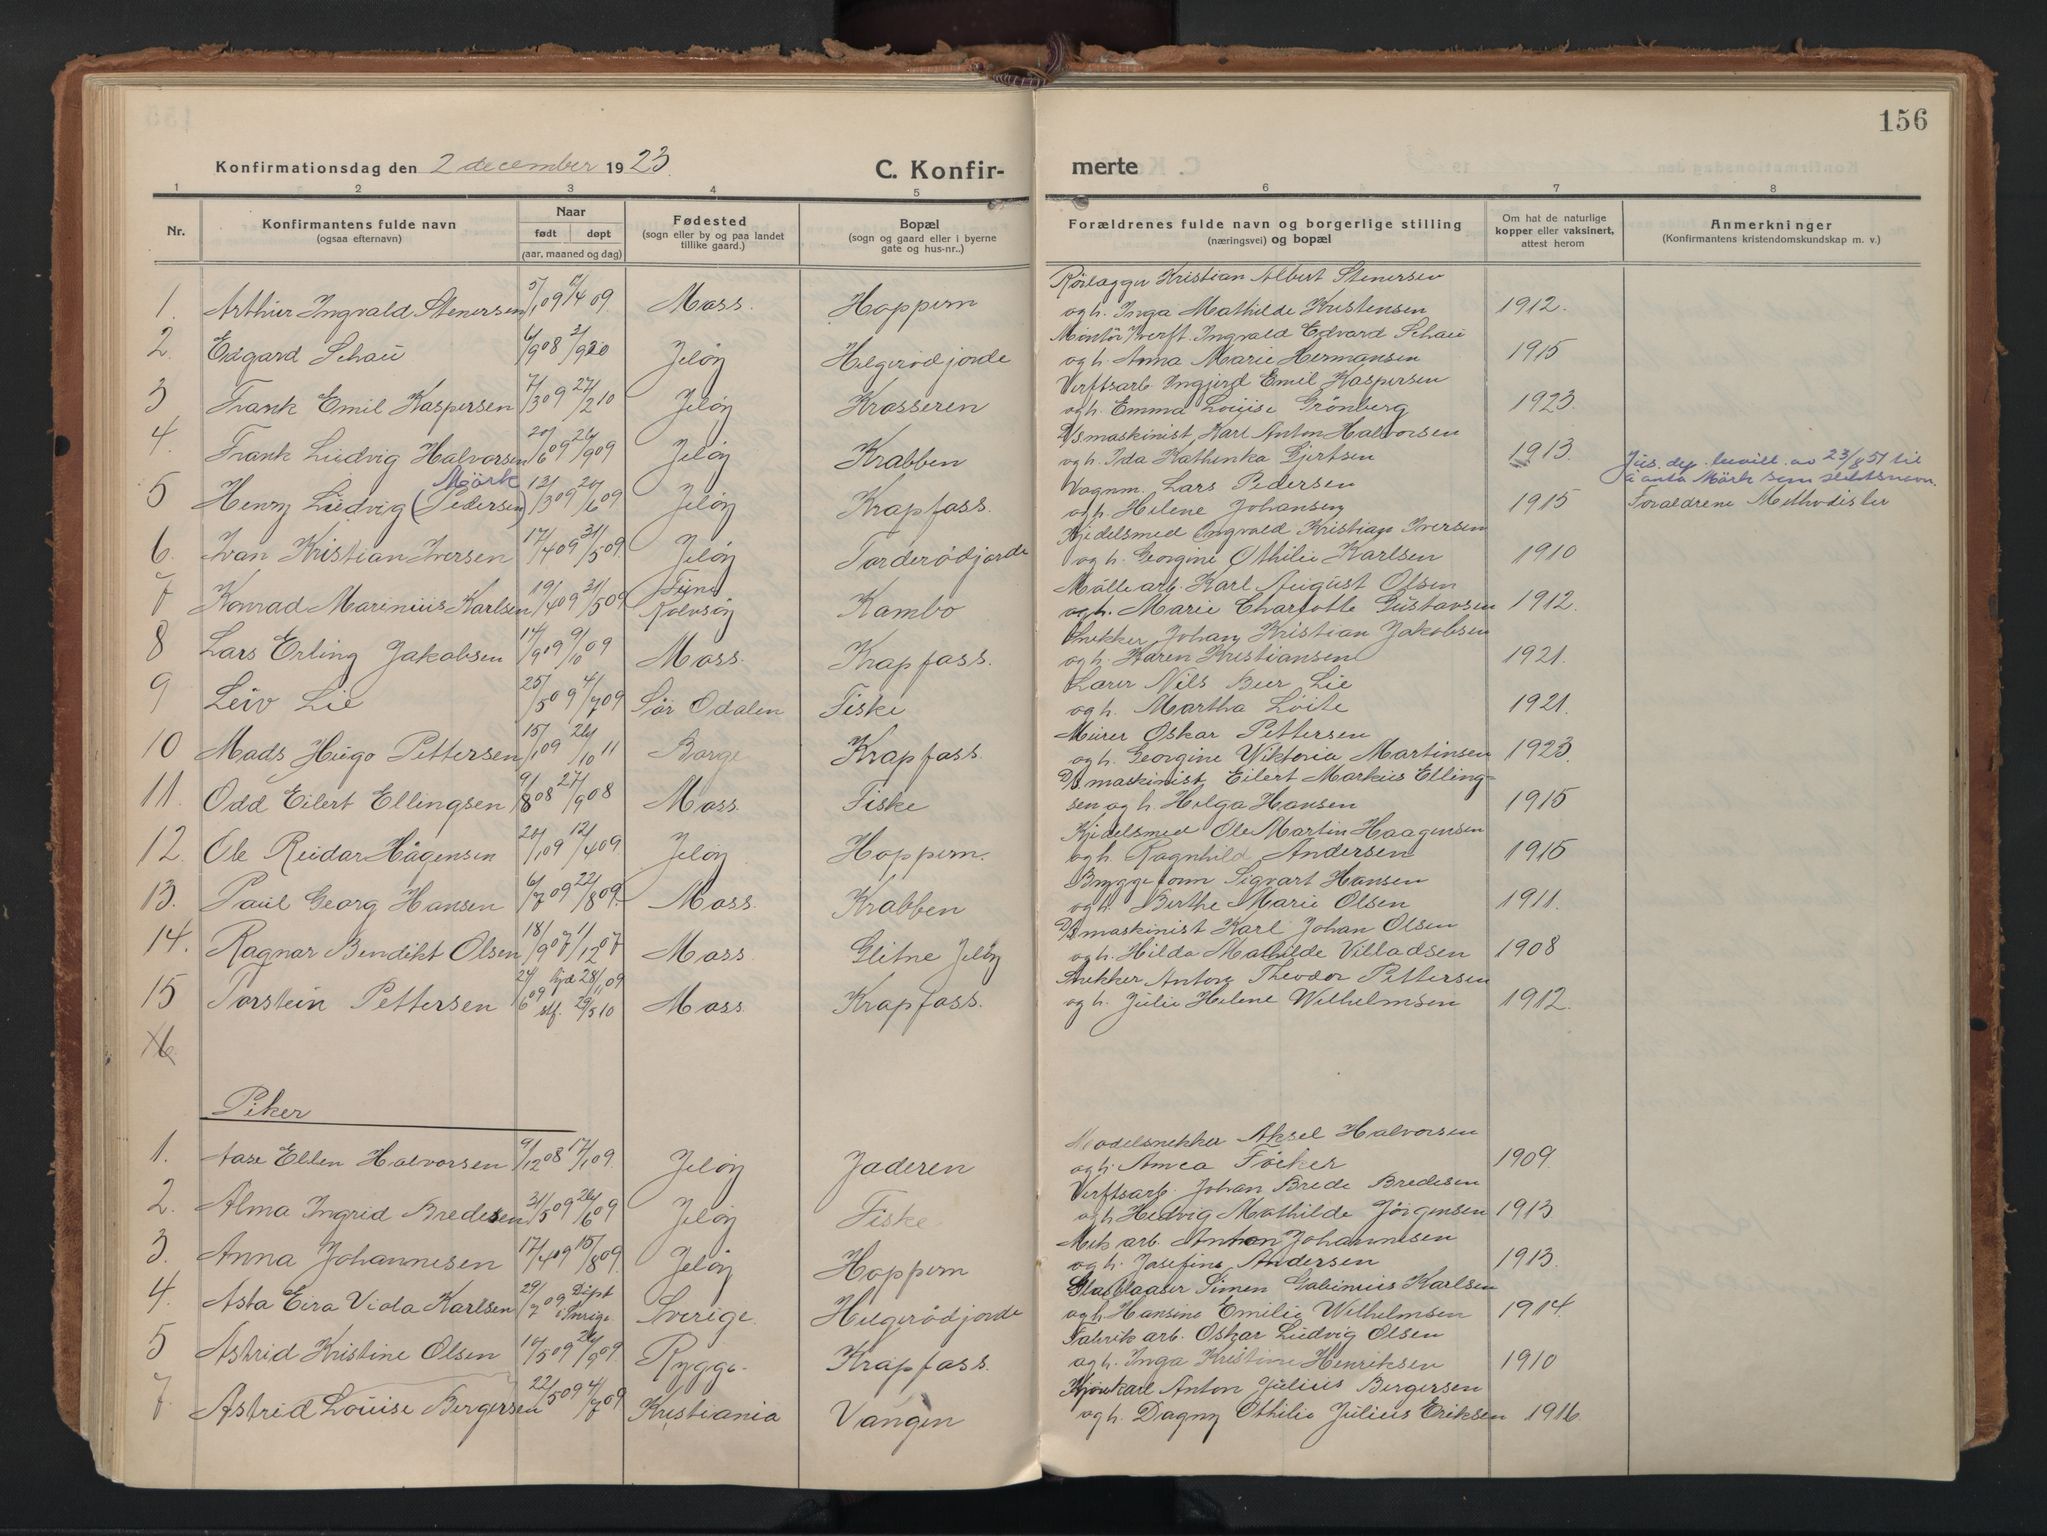 156
Konfirmationsdag den 2 december 1923.
C. Konfir-
merte
1 2 3 4 5 6 7 8
Nr.
Konfirmantens fulde navn
(ogsaa efternavn)
Naar
født døpt
(aar, maaned og dag)
Fødested
(sogn eller by og paa landet
tillike gaard.)
Bopæl
(sogn og gaard eller i byerne
gate og hus-nr..)
Forældrenes fulde navn og borgerlige stilling
(næringsvei) og bopæl
Om hat de naturlige
kopper eller vaksinert,
attest herom
Anmerkninger
(Konfirmantens kristendomskundskap m. v.)
Rørlægger Kristian Albert Stenersen
1. Arthur Ingvald Stenersen 5/1 09 /4 09 Moss. Hoppern og h. Inga Mathilde Kristensen 1912.
Montør Verft. Ingvald Edvard Schau
2. Edgard Schau 6/9 08 Jeløy Helgerødjorde og h. Anna Marie Hermansen 1915
Verftsarb. Ingjerd Emil Kaspersen
3 Frank Emil Kaspersen 7/3 09 27/2 10 Jeløy Krosseren og h. Emma Louise Grönberg 1923.
D/S maskinist Karl Anton Halvorsen
4. Frank Ludvig Halvorsen 20/6 09 26/9 09 Jeløy Krabben og h. Ida Kathinka Gjertsen 1913. Jus. dep. bevill. av 23/8 51 til
Mörk Vognm. Lars Pedersen å anta Mörk som slektsnavn.
5 Henry Ludvig (Pedersen) 12/3 09 20/6 09 Jeløy Krapfoss. og h. Helene Johansen 1915 Foraldrene Methodister
Kjedelsmed Ingvald Kristian Iversen
6. Ivan Kristian Iversen 17/4 09 31/5 09. Jeløy Torderødjorde og h. Georgine Othilie Karlsen 1910
Mölle arb. Karl August Olsen
7 Konrad Marinius Karlsen 19/4 09 31/5 09 Rolvsöy Kambo og h. Marie Charlotte Gustavsen 1912.
Snekker Johan Kristian Jakobsen
8 Lars Erling Jakobsen 14/9 09 9/10 09 Moss. Krapfoss. og h. Karen Kristiansen 1921.
Lærer Nils Beer Lie
9 Leiv Lie 25/5 09 4/7 09 Sör Odalen Fiske og h. Martha Loite 1921.
Murer Oskar Pettersen
10 Mads Hugo Pettersen 15/1 09 26/10 11 Borge Krapfoss. og h. Georgine Viktoria Martinsen 1923
D/S maskinist Eilert Markus Elling-
11. Odd Eilert Ellingsen 9/8 08 27/9 08 Moss. Fiske sen og h. Helga Hansen 1915
Kjedelsmed Ole Martin Haagensen
12. Ole Reidar Hågensen 20/1 09 12/4 09. Jeløy Hoppern. og h. Ragnhild Andersen 1915
Bryggeform Sigvart Hansen
13. Paul Georg Hansen 6/7 09 22/8 09. Moss. Krabben og h. Berthe Marie Olsen 1911.
D/S maskinist Karl Johan Olsen
14. Ragnar Bendikt Olsen 18/9 07 1/12 07 Moss. Glitne Jeløy og h. Hilda Mathilde Villadsen 1908
Snekker Anton Theodor Pettersen
15 Torstein Pettersen 24/6 09 hjd 28/11 09 stf. 29/5 10 Moss. Krapfoss. og h. Julie Helene Wilhelmsen 1912.
16
Piker
Modelsnekker Aksel Halvorsen
1. Aase Ellen Halvorsen 9/12 08 17/1 09. Jeløy Jaderen og h. Amea Föcker 1909.
Verftsarb. Johan Brede Bredesen
2. Alma Ingrid Bredesen 31/5 09 26/6 09 Jeløy Fiske og h. Hedvig Mathilde Jörgensen 1913
Mek arb. Anton Johannesen
3. Anna Johannesen 17/4 09 15/8 09. Jeløy Hoppern og h. Josefine Andersen 1913.
Glasblaaser Simen Gabinius Karlsen
4. Asta Eira Viola Karlsen 29/7 09 Döpt i Sverige. Sverige. Helgerødjorde og h. Hansine Emilie Wilhelmsen 1914.
Fabrik arb. Oskar Ludvig Olsen
5 Astrid Kristine Olsen 14/5 09 26/9 09. Rygge. Krapfoss. og h. Inga Kristine Henriksen 1910
Kjörekarl Anton Julius Bergersen
7. Astrid Louise Bergersen 22/5 09 4/7 09 Kristiania Vangen og h. Dagny Othilie Julius Eriksen 1916.